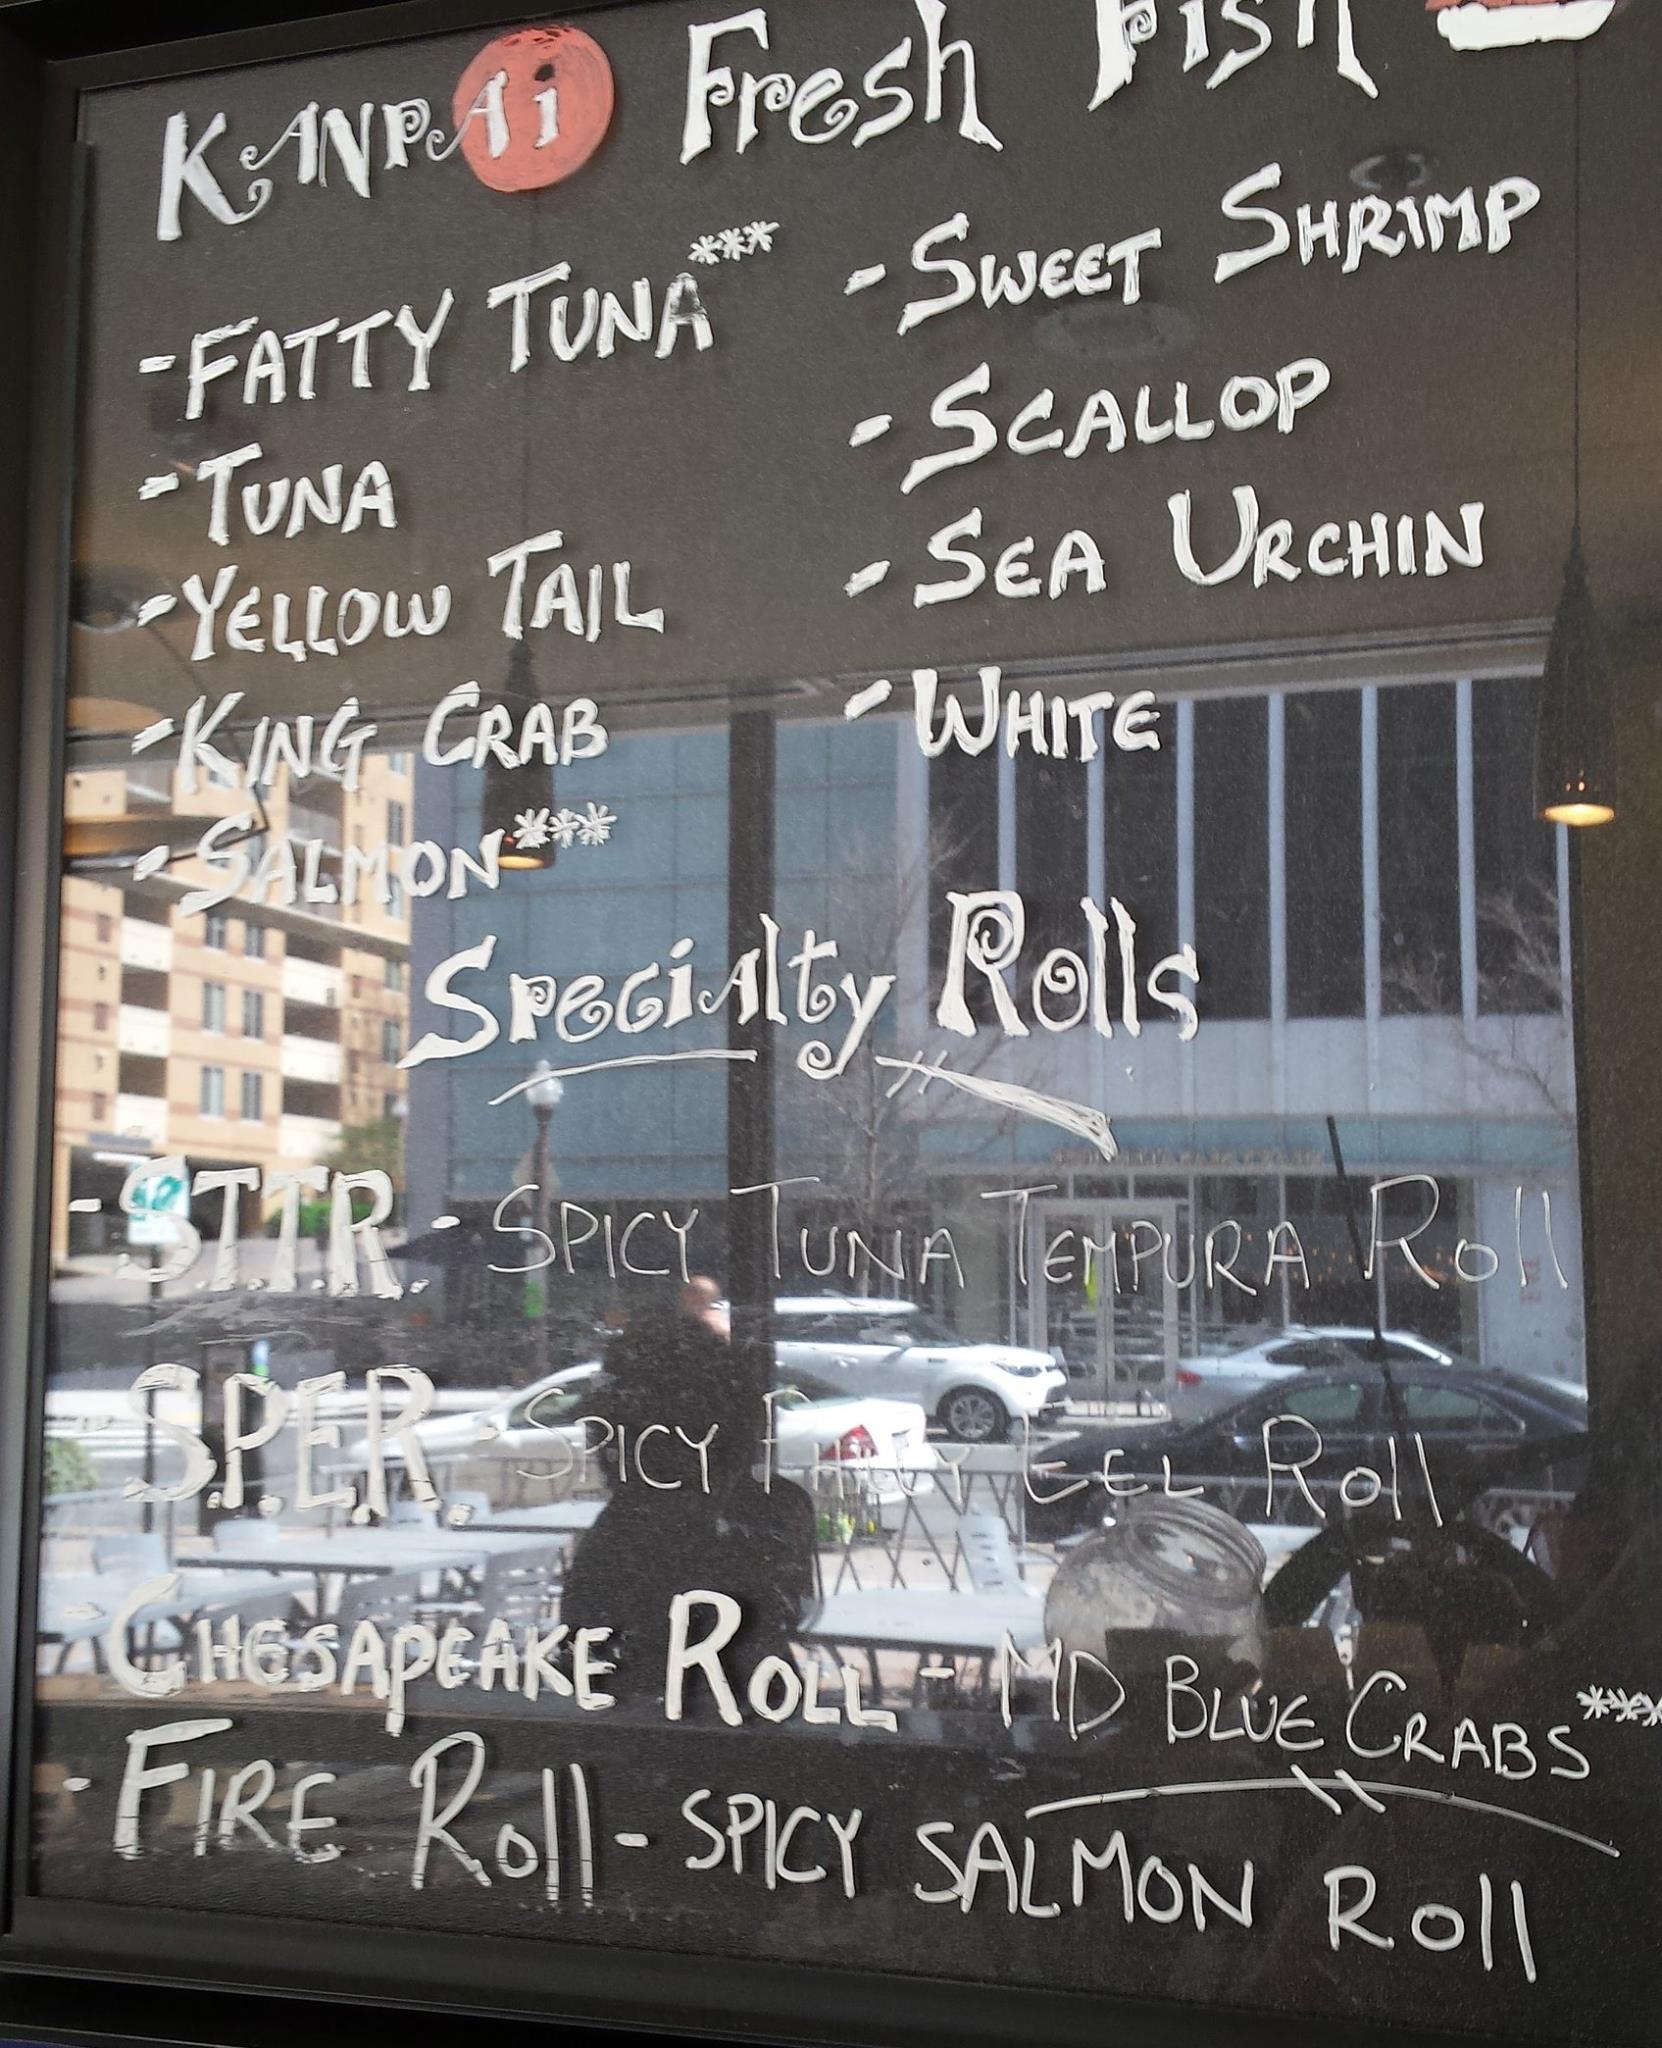 KANPAi Fresh Fish
- FATTY TUNA***
- TUNA
- YELLOW TAIL
- KING CRAB
- SALMON***
- SWEET SHRIMP
- SCALLOP
- SEA URCHIN
- WHITE
Specialty Rolls
- S.T.T.R. - SPICY TUNA TEMPURA Roll
- S.P.E.R. - SPICY EEL Roll
- CHESAPEAKE ROLL - MD BLUE CRABS***
- FIRE Roll - SPICY SALMON Roll